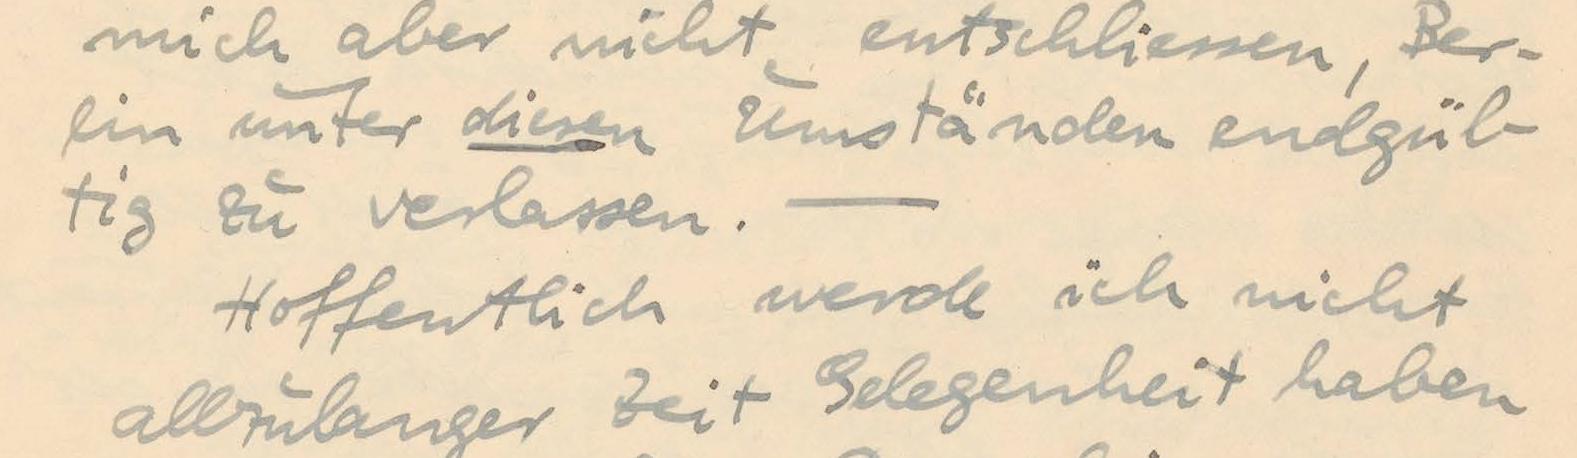 mich aber nicht entschliessen, Ber-
lin unter diesen Umständen endgül-
tig zu verlassen. —
Hoffentlich werde ich nicht
allzulanger Zeit Gelegenheit haben